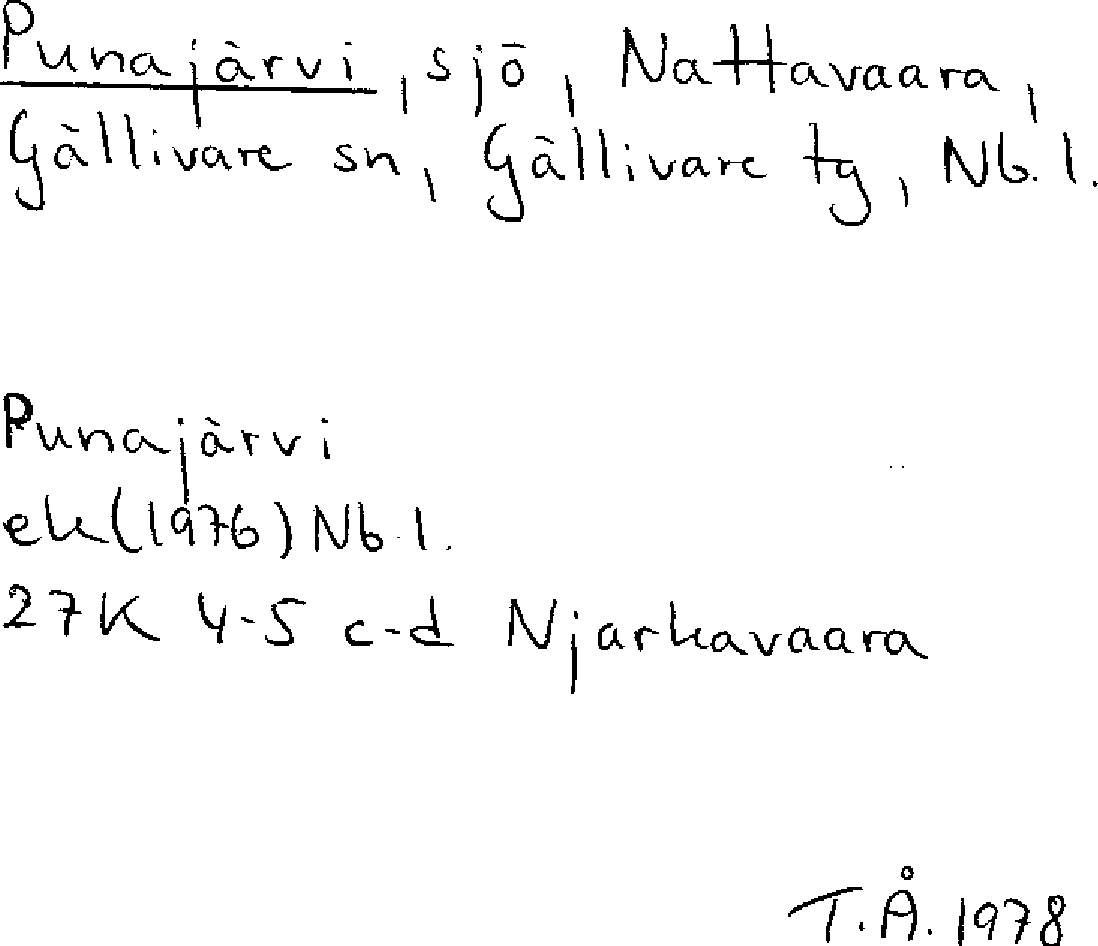 Punajärvi, sjö, Nattavaara,
Gällivare sn, Gällivare tg, Nb.l.
Punajärvi
ek(1976) Nb.l.
27K 4-5 c-d Njarkavaara
T.Å. 1978